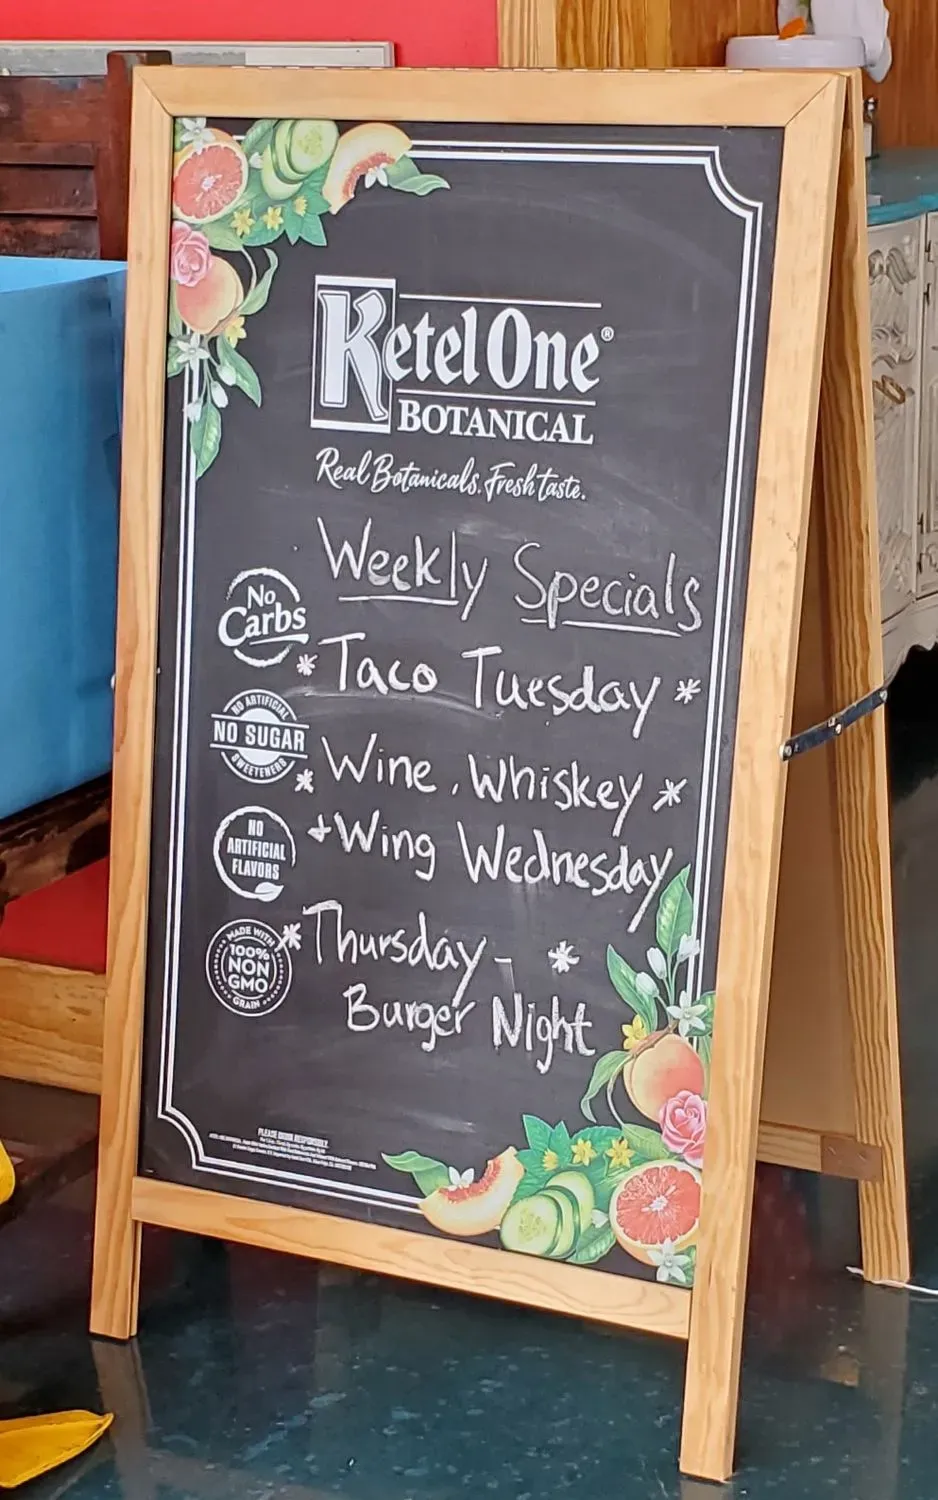 Ketel One®
BOTANICAL
Real Botanicals. Fresh taste.
Weekly Specials
No
Carbs
* Taco Tuesday *
NO ARTIFICIAL
NO SUGAR
SWEETENERS
* Wine, Whiskey *
+ Wing Wednesday
NO
ARTIFICIAL
FLAVORS
* Thursday - *
Burger Night
MADE WITH
100%
NON
GMO
GRAIN
PLEASE DRINK RESPONSIBLY.